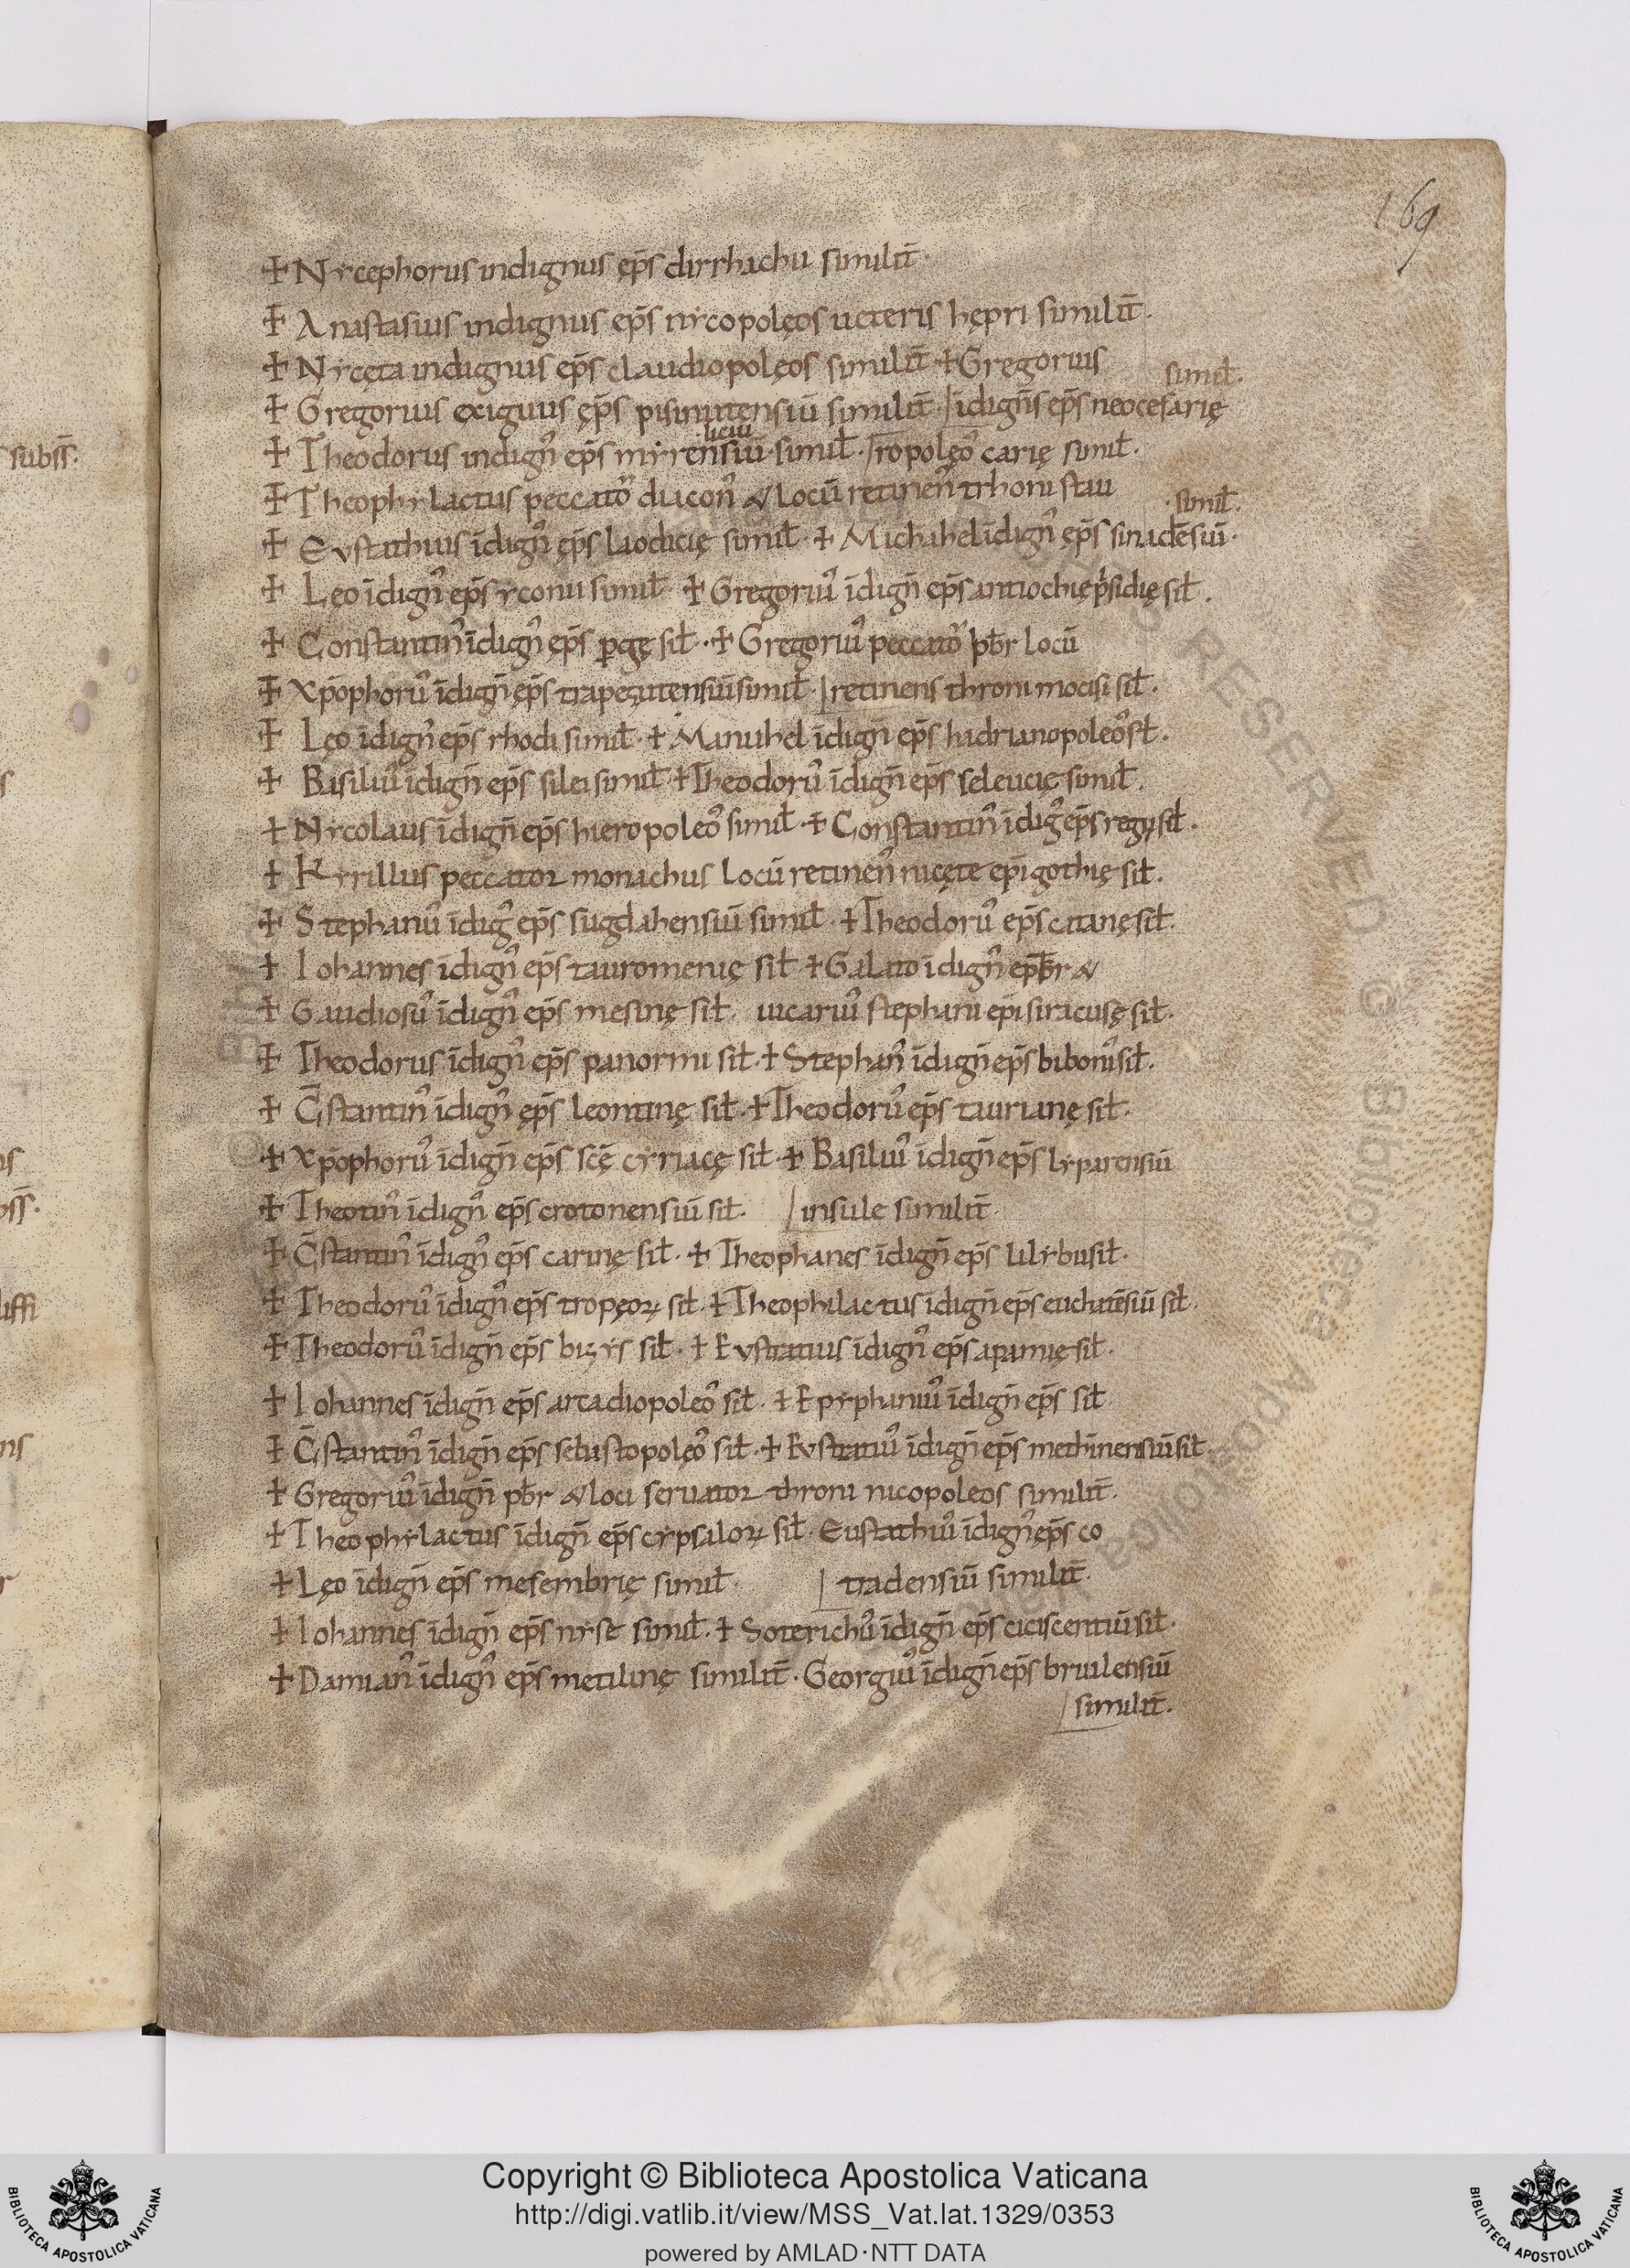 169
✝ Nycephorus indignus ep̄s dirrhachii similit̄
✝ Anastasius indignus ep̄s nycopolęos ueteris hępri similit̄.
✝ Nycęta indignus ep̄s claudiopolęos similit̄ ✝ Gregorius simił.
✝ Gregorius exiguus ęp̄s pisinutensiū similit̄. / īdign̄s ep̄s neocesarię
✝ Theodorus indign᾽ ep̄s myrensiū liciu simił. / ropolęo᾽ carię simił.
✝ Theophylactus peccato᾽ diacon᾽ & locū retinen᾽ trhoni stau
✝ Eustathius īdign᾽ ęp̄s laodicię simił. ✝ Michahel īdign᾽ ęp̄s sinadēsiū. simił.
✝ Lęo īdign᾽ ep̄s yconii simił. ✝ Gregoriu᾽ īdign̄ ep̄s antiochię p̄sidię sił.
✝ Constantin᾽ īdign᾽ ęp̄s ꝑgę sił. ✝ Gregoriu᾽ peccato᾽ pƀr locū
✝ Xp̄ophoru᾽ īdign̄ ęp̄s trapeçutensiū simił. / retinens throni mocisi sił.
✝ Lęo īdign᾽ ep̄s rhodi simił. ✝ Manuhel īdign̄ ep̄s hadrianopoleo᾽ sł.
✝ Basiliu᾽ īdign̄ ep̄s silei simił ✝ Theodoru᾽ īdign̄ ep̄s seleucię simił.
✝ Nycolaus īdign̄ ep̄s hieropoleo᾽ simił. ✝ Constantin᾽ īdig᾽ ep̄s regij sił.
✝ Kyrillus peccator monachus locū retinen᾽ nicęte ep̄i gothię sił.
✝ Stephanu᾽ īdig᾽ ep̄s sugdahensiū simił. ✝ Theodoru᾽ ep̄s catanę sił.
✝ Iohannes īdign᾽ ep̄s tauromenię sił ✝ Galato īdign᾽ epƀr &
✝ Gaudiosu᾽ īdign᾽ ep̄s mesinę sił. uicariu᾽ stephani ep̄i siracusę sił.
✝ Theodorus īdign᾽ ep̄s panormi sił. ✝ Stephan᾽ īdign̄ ep̄s biboni᾽ sił.
✝ C̄stantin᾽ īdign᾽ ęp̄s leontinę sił. ✝ Theodoru᾽ ep̄s taurianę sił.
✝ Xp̄ophoru᾽ īdign̄ ep̄s sc̄ę cyriacę sił. ✝ Basiliu᾽ īdign̄ ep̄s lyparensiū
✝ Theotin᾽ īdign᾽ ep̄s crotonensiū sił. / insule similit̄.
✝ C̄stantin᾽ īdign᾽ ep̄s carinę sił. ✝ Theophanes īdign̄ ep̄s lilybii sił.
✝ Theodoru᾽ īdign᾽ ep̄s tropęoꝝ sił. ✝ Theophilactus īdign̄ ep̄s euchatēsiū sił.
✝ Theodoru᾽ īdign̄ ep̄s bizys sił. ✝ Eustratius īdign᾽ ep̄s apamię sił.
✝ Iohannes īdign̄ ep̄s arcadiopoleo᾽ sił. ✝ Epyphaniu᾽ īdign̄ ep̄s sił
✝ C̄stantin᾽ īdign̄ ep̄s sebastopolęo᾽ sił. ✝ Eustratiu᾽ īdign̄ ep̄s methinensiū sił.
✝ Gregoriu᾽ īdign̄ pƀr & loci seruator throni nicopoleos similit̄.
✝ Theophylactus īdign̄ ep̄s cypsaloꝝ sił. Eustathiu᾽ īdign᾽ ęp̄s co
✝ Lęo īdign̄ ep̄s mesembrię simił. / tradensiū similit̄.
✝ Iohannes īdign̄ ep̄s nyse simił. ✝ Soterichu᾽ īdign̄ ep̄s ciciscentiū sił.
✝ Damian᾽ īdign᾽ ep̄s metilinę similit̄. Georgiu᾽ īdign̄ ep̄s bruilensiū
/ similit̄.
subsS̄.
Copyright © Biblioteca Apostolica Vaticana
http://digi.vatlib.it/view/MSS_Vat.lat.1329/0353
powered by AMLAD·NTT DATA
BIBLIOTECA APOSTOLICA VATICANA
BIBLIOTECA APOSTOLICA VATICANA